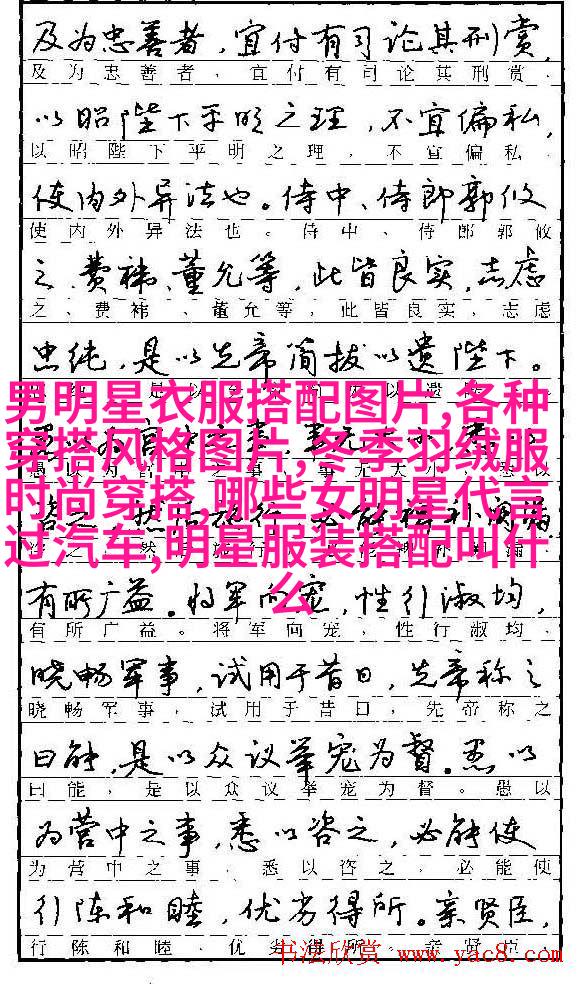 及为忠善者，宜付有司论其刑赏，
及为忠善者，宜付有司论其刑赏．
以昭陛下平明之理，不宜偏私，
以昭陛下平明之理，不宜偏私．
使内外异法也。侍中、侍郎郭攸
使内外异法也。侍中、侍郎郭攸
之、费祎、董允等，此皆良实，志虑
之、费祎、董允等，此皆良实，志虑
忠纯，是以先帝简拔以遗陛下。
男明星衣服搭配图片,各种
穿搭风格图片,冬季羽绒服
时尚穿搭,哪些女明星代言
过汽车,明星服装搭配叫什
么
有所广益。将军向宠，性行淑均，
有所广益。将军向宠，性行淑均．
晓畅军事，试用于昔日，先帝称之
晓畅军事，试用于昔日，先帝称之
曰能，是以众议举宠为督。愚以
曰能，是以众议举宠为督。愚以
为营中之事，悉以咨之，必能使
为营中之事，悉以咨之，必能使
行陈和睦，优劣得所。亲贤臣，
行陈和睦，优劣得所
书法欣赏 www.yac8.com